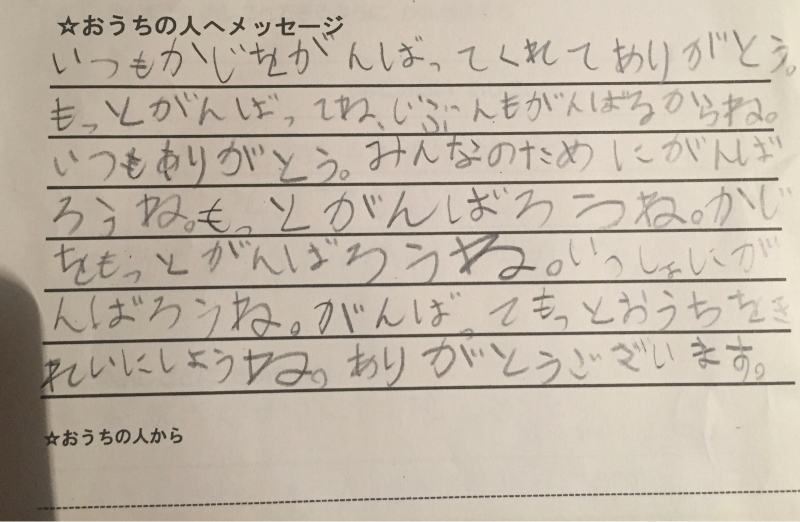 ☆おうちの人へメッセージ
いつもかじをがんばってくれてありがとう。
もっとがんばってね、じぶんもがんばるからね。
いつもありがとう。みんなのためにがんば
ろうね。もっとがんばろうね。かじ
をもっとがんばろうね。いっしょにが
んばろうね。がんばってもっとおうちをき
れいにしようね。ありがとうございます。
☆おうちの人から